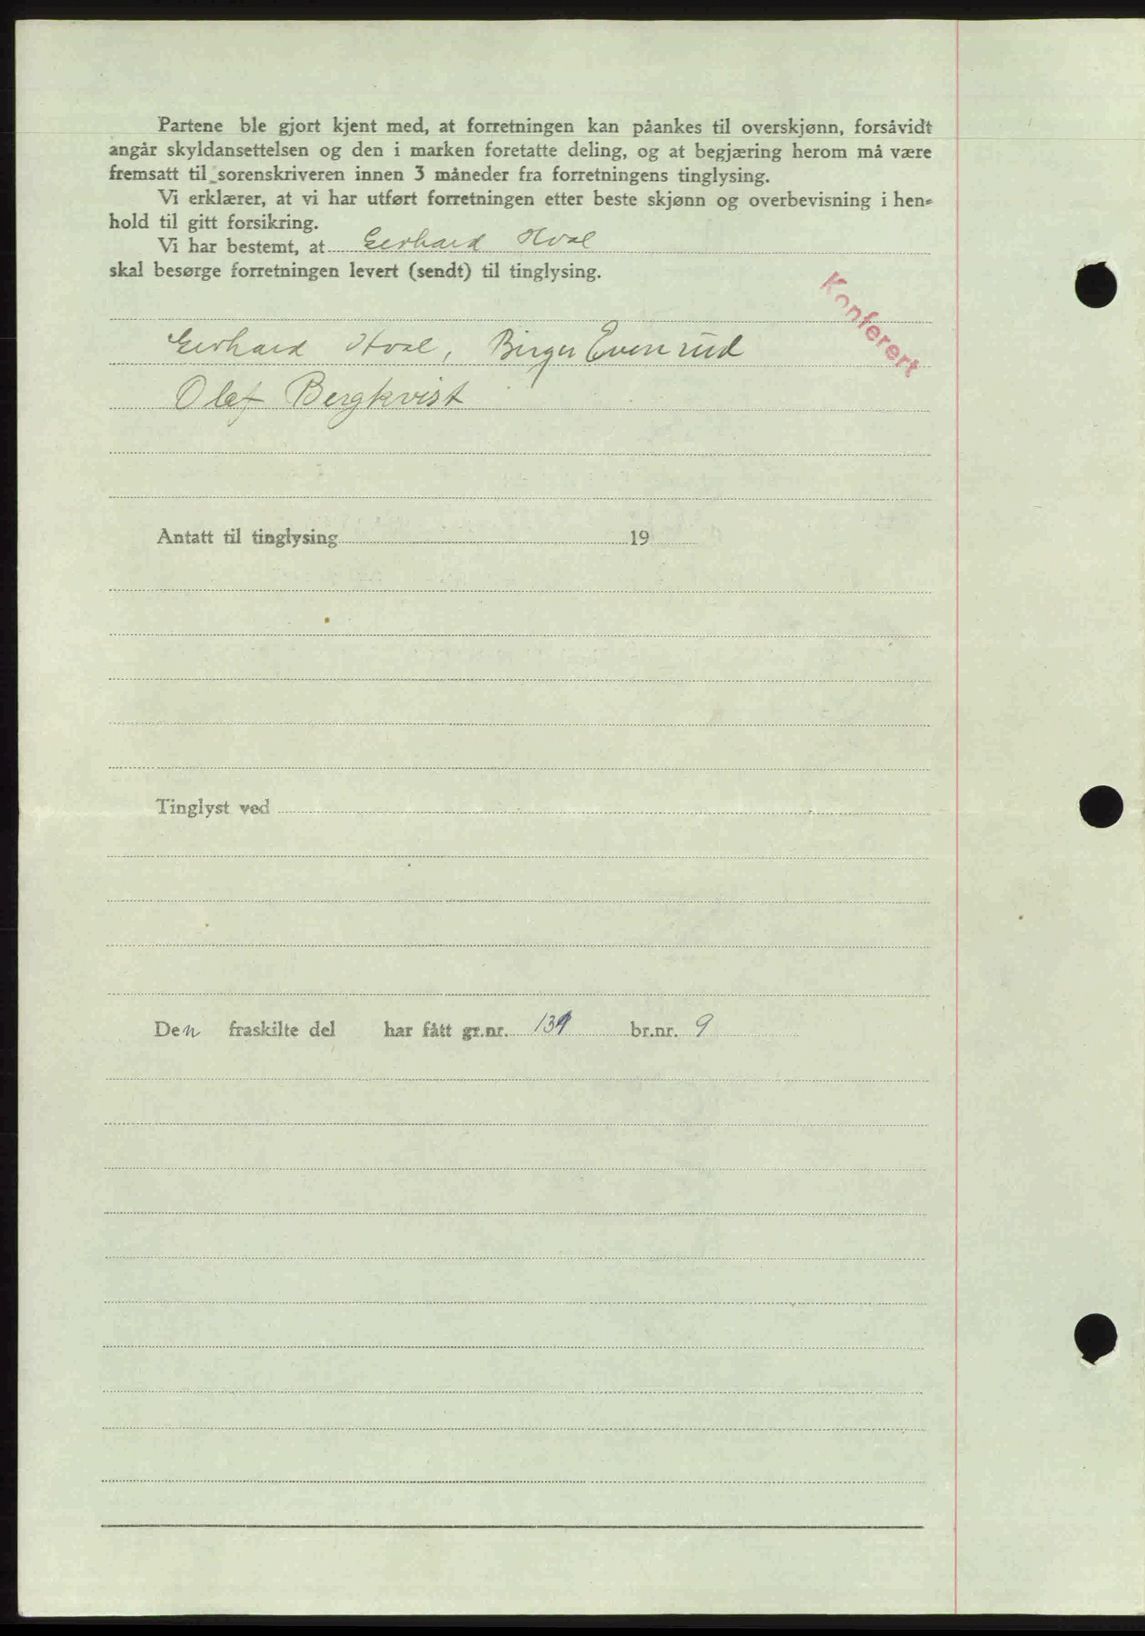 Partene ble gjort kjent med, at forretningen kan påankes til overskjønn, forsåvidt
angår skyldansettelsen og den i marken foretatte deling, og at begjæring herom må være
fremsatt til sorenskriveren innen 3 måneder fra forretningens tinglysing.
Vi erklærer, at vi har utført forretningen etter beste skjønn og overbevisning i hen-
hold til gitt forsikring.
Vi har bestemt, at Gerhard Hval
skal besørge forretningen levert (sendt) til tinglysing.
Konferert
Gerhard Hval, Birger Evenrud
Olaf Bergkvist
Antatt til tinglysing 19
Tinglyst ved
Den fraskilte del har fått gr.nr. 139 br.nr. 9